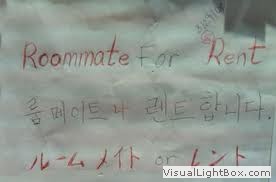 Roommate For Rent
룸메이트나 렌트합니다.
ルームメイト or レント
VisualLightBox.com